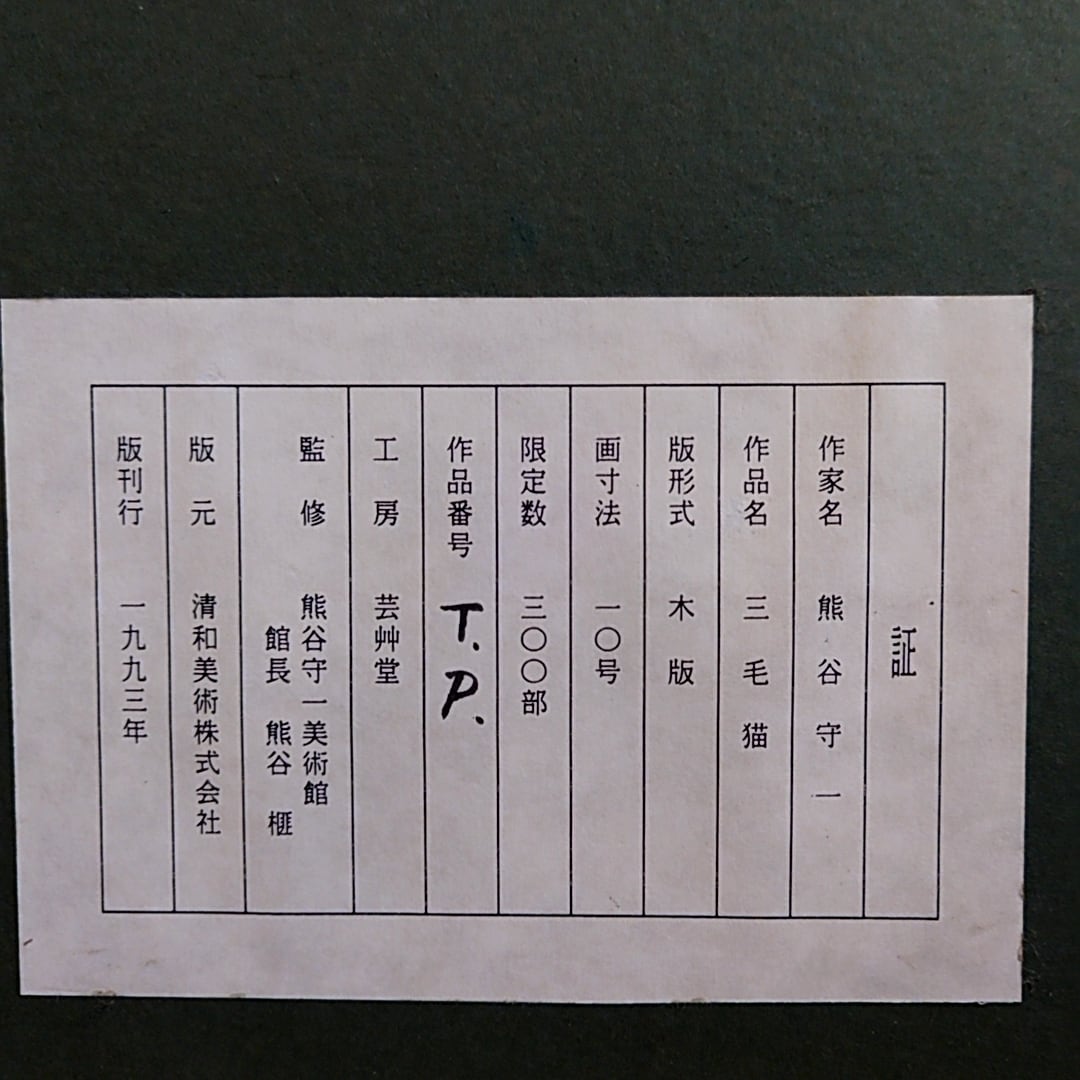 証
作家名 熊谷守一
作品名 三毛猫
版形式 木版
画寸法 一〇号
限定数 三〇〇部
作品番号 T.P.
工房 芸艸堂
監修 熊谷守一美術館
館長 熊谷 榧
版元 清和美術株式会社
版刊行 一九九三年